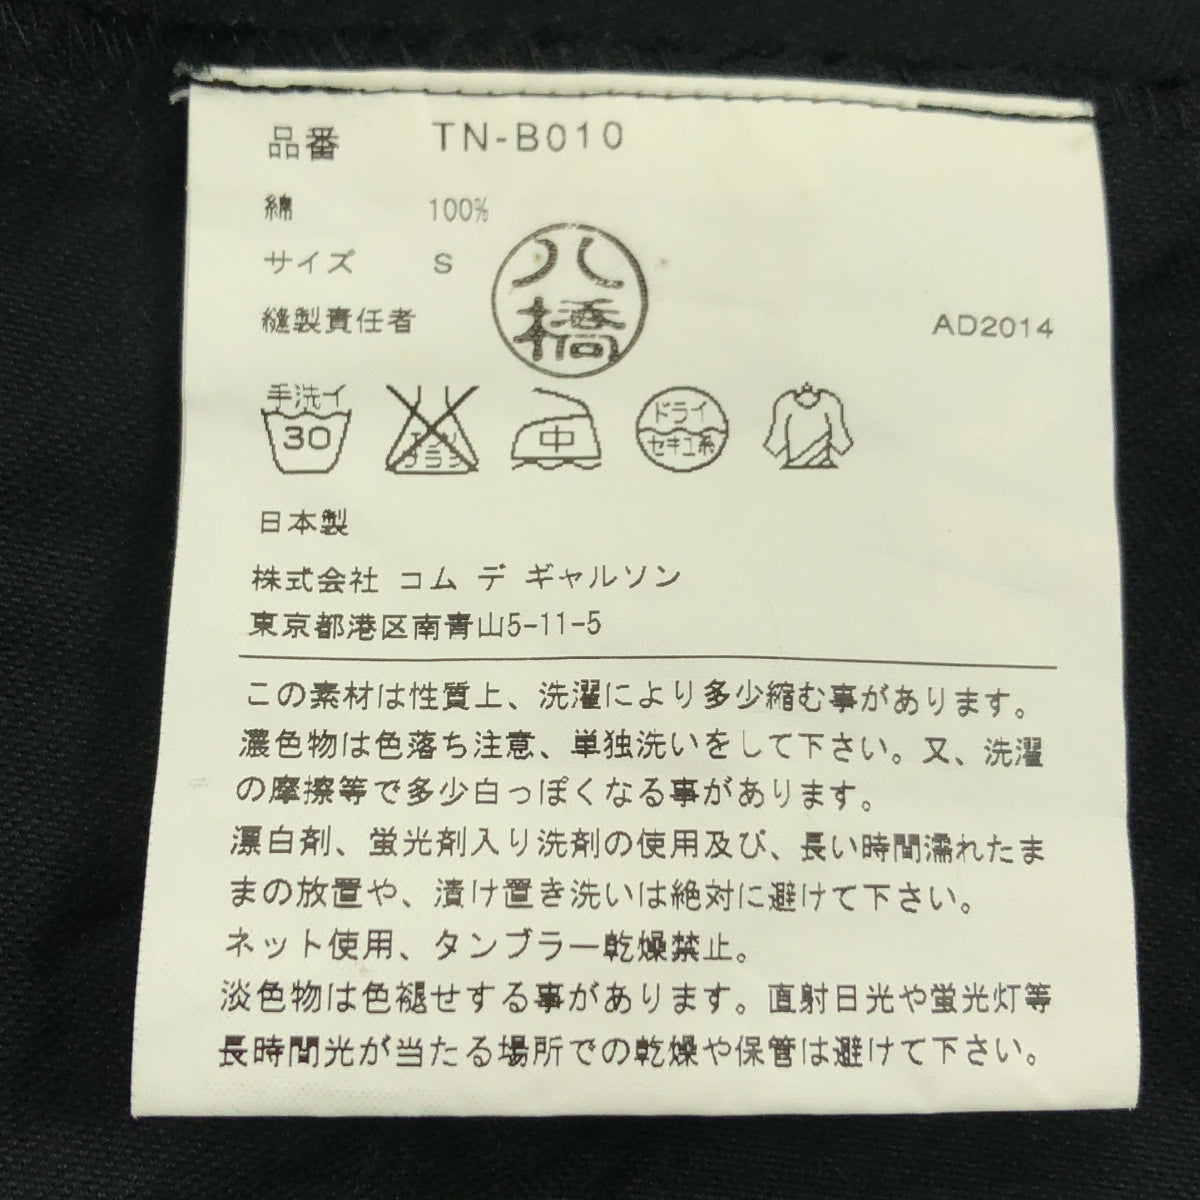 品番 TN-B010
綿 100%
サイズ S
縫製責任者 八橋
AD2014
手洗イ 30
エンソ サラシ
中
ドライ セキユ系
日本製
株式会社 コム デ ギャルソン
東京都港区南青山5-11-5
この素材は性質上、洗濯により多少縮む事があります。
濃色物は色落ち注意、単独洗いをして下さい。又、洗濯
の摩擦等で多少白っぽくなる事があります。
漂白剤、蛍光剤入り洗剤の使用及び、長い時間濡れたま
まの放置や、漬け置き洗いは絶対に避けて下さい。
ネット使用、タンブラー乾燥禁止。
淡色物は色褪せする事があります。直射日光や蛍光灯等
長時間光が当たる場所での乾燥や保管は避けて下さい。